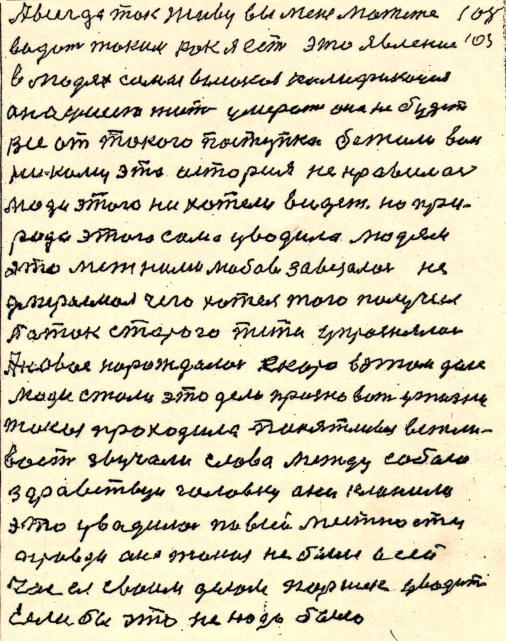 Авсегда так живу вы мене можете 108
видат таким как я ест это явление '03
в людях самая высокая калификация
она умеет жит умерат она не будет
все от такого поступка бежали вон
никому эта история не нравилас
люди этого ни хотели видет. но при-
рода этого само вводила людям
это меж ними любов завезалас не
умераемая чего хотел того получил
А так старого тита упразнялос
А новое нарождалос скоро в этом деле
люди стали это дело празновоат
такая проходила Понятливая вежли-
вост звучали слова между собою
здравствуй головку они клонили
это вводилос по всей местности
правди она такая не была
час с своим делом Паршек вводит
Если бы это не надо было